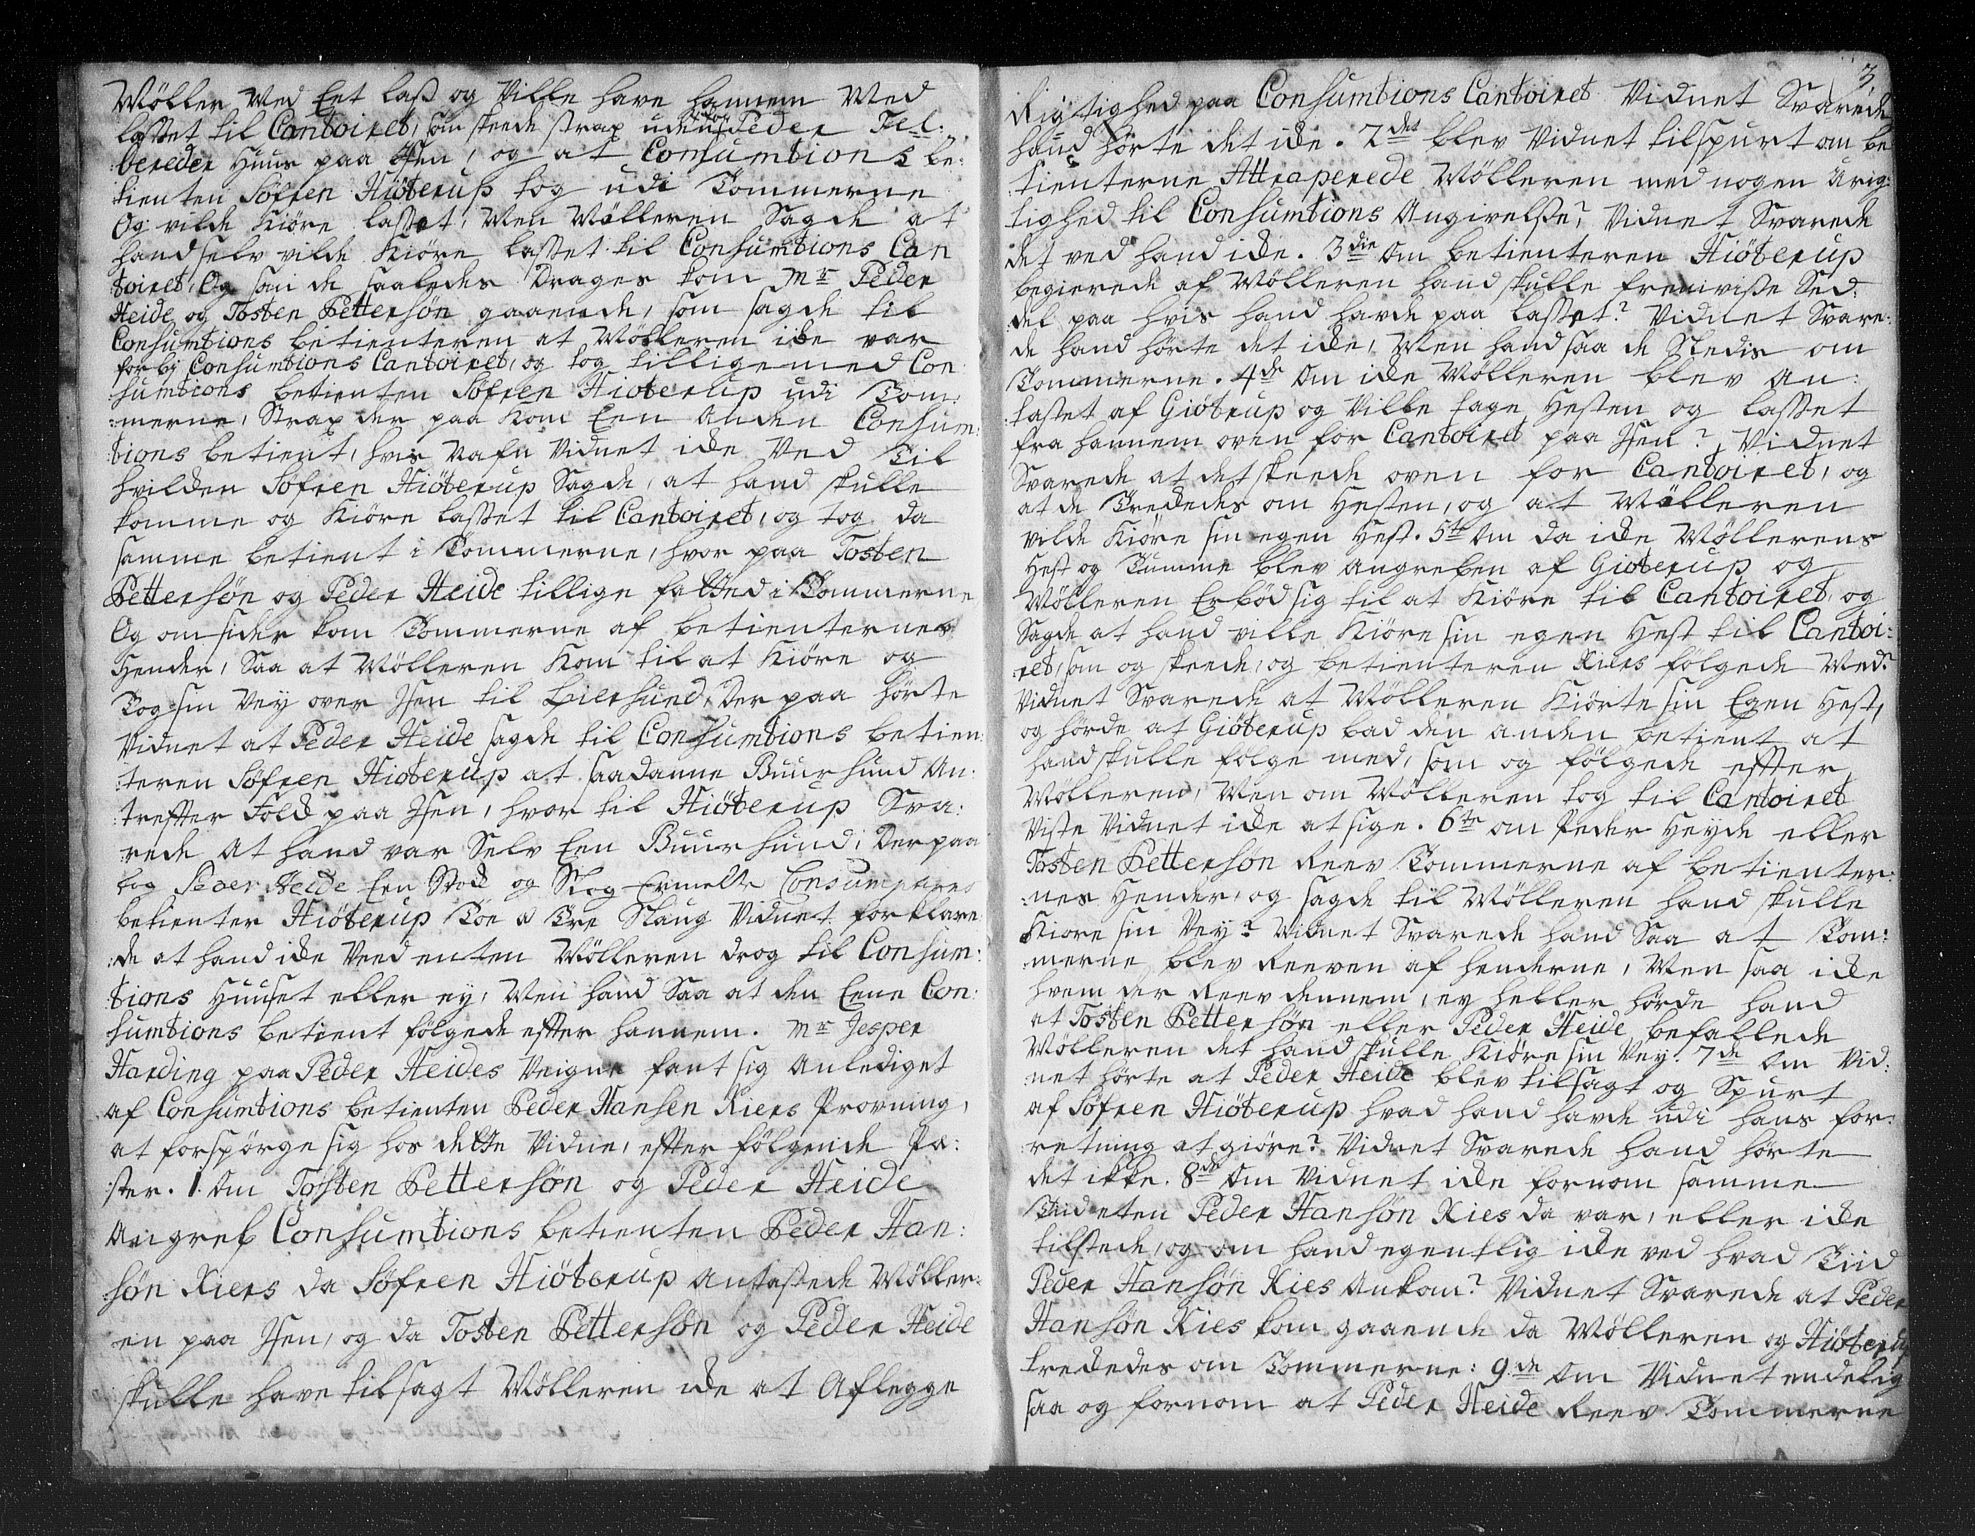 Møller Med Eet lass og Ville have hannem Med
lasset til Cantoiret, som skeede strax uden for Peder Fel:
bereder Huus paa Jsen, og at Consumtions be:
tienten Søfren Hiøterup tog udi Tømmerne
Og vilde Kiøre lasset, Men Mølleren Sagde at
hand selv vilde Kiøre lasset til Consumtions Can
toiret, Og som de saaledes Drages kom Mr Peder
Heide og Tosten Pettersøn gaaende, som sagde til
Consumtions betienteren at Mølleren icke var
forbi Consumtions Cantoiret, og tog tillige med Con
sumtions betienten Søfren Hiøterup udi Tøm:
merne, Strax der paa Kom Een anden Consum:
tions betient, hvis Nafn Vidnet icke Ved Til
hvilden Søfren Hiøterup Sagde, at hand skulle
komme og Kiøre lasset til Cantoiret, og tog da
samme betient i Tømmerne, hvor paa Tosten
Pettersøn og Peder Heide tillige fatted i Tømmerne
Og omsider kom Tømmerne af betienternes
Hender, Saa at Mølleren Kom til at Kiøre og
Tog sin Vey over Jsen til Liersund, Der paa hørte
Vidnet at Peder Heide sagde til Consumtions betien:
teren Søfren Hiøterup at saadanne Buurhund An:
treffer Folck paa Jsen, hvor til Hiøterup Sva:
rede At hand var Selv Een Buurhund, Der paa
tog Peder Heide Een Stock og Slog Ermelte Consumptions
betienter Hiøterup Toe a Tre Slaug Vidnet forklare
de at hand icke Veed enten Mølleren drog til Consum:
tions Huuset eller ey, Men hand Saa at den Eene Con:
sumtions betient følgede efter hannem. Mr Jesper
Harding paa Peder Heides Veigne fant sig Anlediget
af Consumtions betienten Peder Hansen Riers Provning,
at forspørge sig hos dette Vidne, effter følgende Po:
ster. 1. Om Tosten Pettersøn og Peder Heide
Angreb Consumtions betienten Peder Han:
søn Riers da Søfren Hiøterup Antastede Møller:
en paa Jsen, og da Tosten Pettersøn og Peder Heide
skulle have tilsagt Mølleren icke at Aflegge
3
Rigtighed paa Consumtions Cantoiret Vidnet Svarede
hand hørte det icke. 2det blev Vidnet tilspurt om be
tienterne Attraperede Mølleren med nogen Urig:
tighed til Consumtions Angivelse? Vidnet Svarede
det ved hand icke. 3die Om betienteren Hiøterup
begierede af Mølleren hand skulle fremvisse Sed:
del paa hvis hand havde paa lasset? Vidnet Svare:
de hand hørte det icke, Men hand saa de Stedis om
Tømmerne. 4de Om icke Mølleren blev An:
tastet af Giøterup og Ville tage Hesten og lasset
fra hannem oven for Cantoiret paa Jsen? Vidnet
Svarede at det skeede oven for Cantoiret, og
at de Trededes om Hesten, og at Mølleren
vilde Kiøre sin egen Hest. 5te Om da icke Møllerens
Hest og Tømme blev angreben af Giøterup og
Mølleren Erbød sig til at Kiøre til Cantoiret, og
Sagde at hand ville Kiøre sin egen Hest til Cantoi:
ret, som og skeede, og betienteren Riers følgede Med?
Vidnet Svarede at Mølleren Kiørte sin Egen Hest,
og hørde at Giøterup bad den anden betient at
hand skulle følge med, som og følgede effter
Mølleren, Men om Mølleren tog til Cantoiret
Viste Vidnet icke at sige. 6te om Peder Heyde eller
Tosten Pettersøn Reev Tømmerne af betienter:
nes Hender, og sagde til Mølleren hand skulle
Kiøre sin Vey? Vidnet Svarede hand Saa at Tøm:
merne blev Reeven af henderne, Men saa icke
hvem der Reev dennem, ey heller hørde hand
at Tosten Pettersøn eller Peder Heide befallede
Mølleren det hand skulle Kiøre sin Vey. 7de Om Vid:
net hørte at Peder Heide blev tilsagt og Spurt
af Søfren Hiøterup hvad hand havde udi hans for:
retning at giøre? Vidnet Svarede hand hørte
det ikke. 8de Om Vidnet icke fornom samme
Tiid eten Peder Hansøn Ries da var, eller icke
tilstede, og om hand egentlig icke ved hvad Tiid
Peder Hansøn Ries Ankom? Vidnet Svarede at Peder
Hansøn Ries kom gaaende da Mølleren og Hiøterup
trededes om Tømmerne: 9de Om Vidnet endelig
saa og fornom at Peder Heide Reev Tømmerne